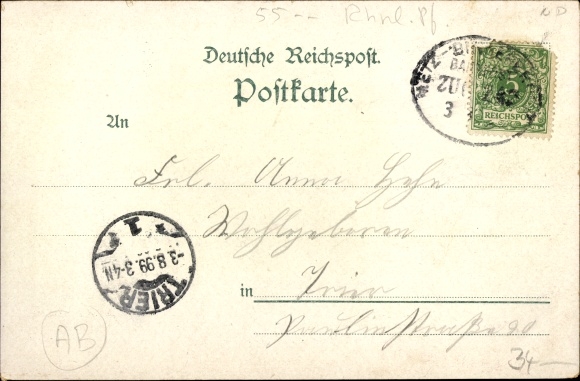 55-- Rhnl. Pf.
ND
Deutsche Reichspost.
Postkarte.
METZ-
BA
ZUG
3
5
REICHSPOST
An
Frl. Anna Hehn
Wohlgeboren
in Trier
Paulinstraße 20
TRIER
1
-3.8.99.3-4N.
AB
34-